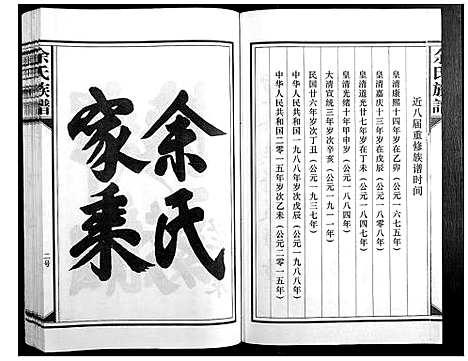 余氏族譜
近八届重修族谱时间
皇清康熙十四年岁在乙卯（公元一六七五年）
皇清嘉庆十三年岁在戊辰（公元一八〇八年）
皇清道光廿七年岁在丁未（公元一八四七年）
皇清光绪十年甲申岁（公元一八八四年）
大清宣统三年岁次辛亥（公元一九一一年）
民国廿六年岁次丁丑（公元一九三七年）
中华人民共和国一九八八年岁次戊辰（公元一九八八年）
中华人民共和国二〇一五年岁次乙未（公元二〇一五年）
余氏
家乘
余氏族譜
二号